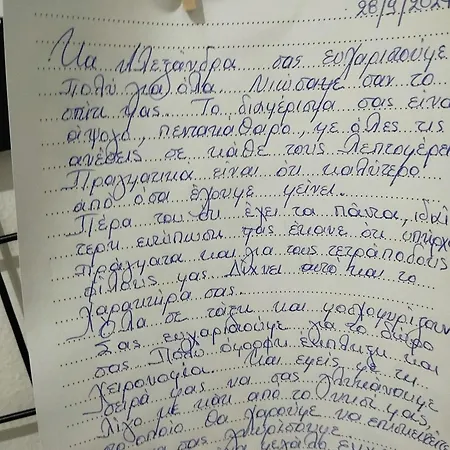 28/9/202
Κα Αλεξάνδρα σας ευχαριστούμε
πολύ για όλα. Νιώσαμε σαν το
σπίτι μας. Το διαμέρισμα σας είναι
άψογο, πεντακάθαρο, με όλες τις
ανέσεις σε κάθε τους λεπτομέρει
Πραγματικα είναι ότι καλύτερο
από όσα έχουμε μείνει.
Πέρα του ότι έχει τα πάντα, ιδιαί
τερη εντύπωση μας έκανε ότι υπήρχα
πράγματα και για τους τετράποδους
φίλους μας. Δίχνει αυτό και το
χαρακτήρα σας.
Όλα σε τάξη και μοσχομυρίζουν
Σας ευχαριστούμε για το δώρο
σας. Πολύ όμορφη έκπληξη και
χειρονομία. Και εμείς με τη
σειρά μας να σας γλυκάνουμε
λίγο με κάτι από το νησί μας,
το οποίο θα χαρούμε να επισκεφτείτε
σας γνωρίσουμε